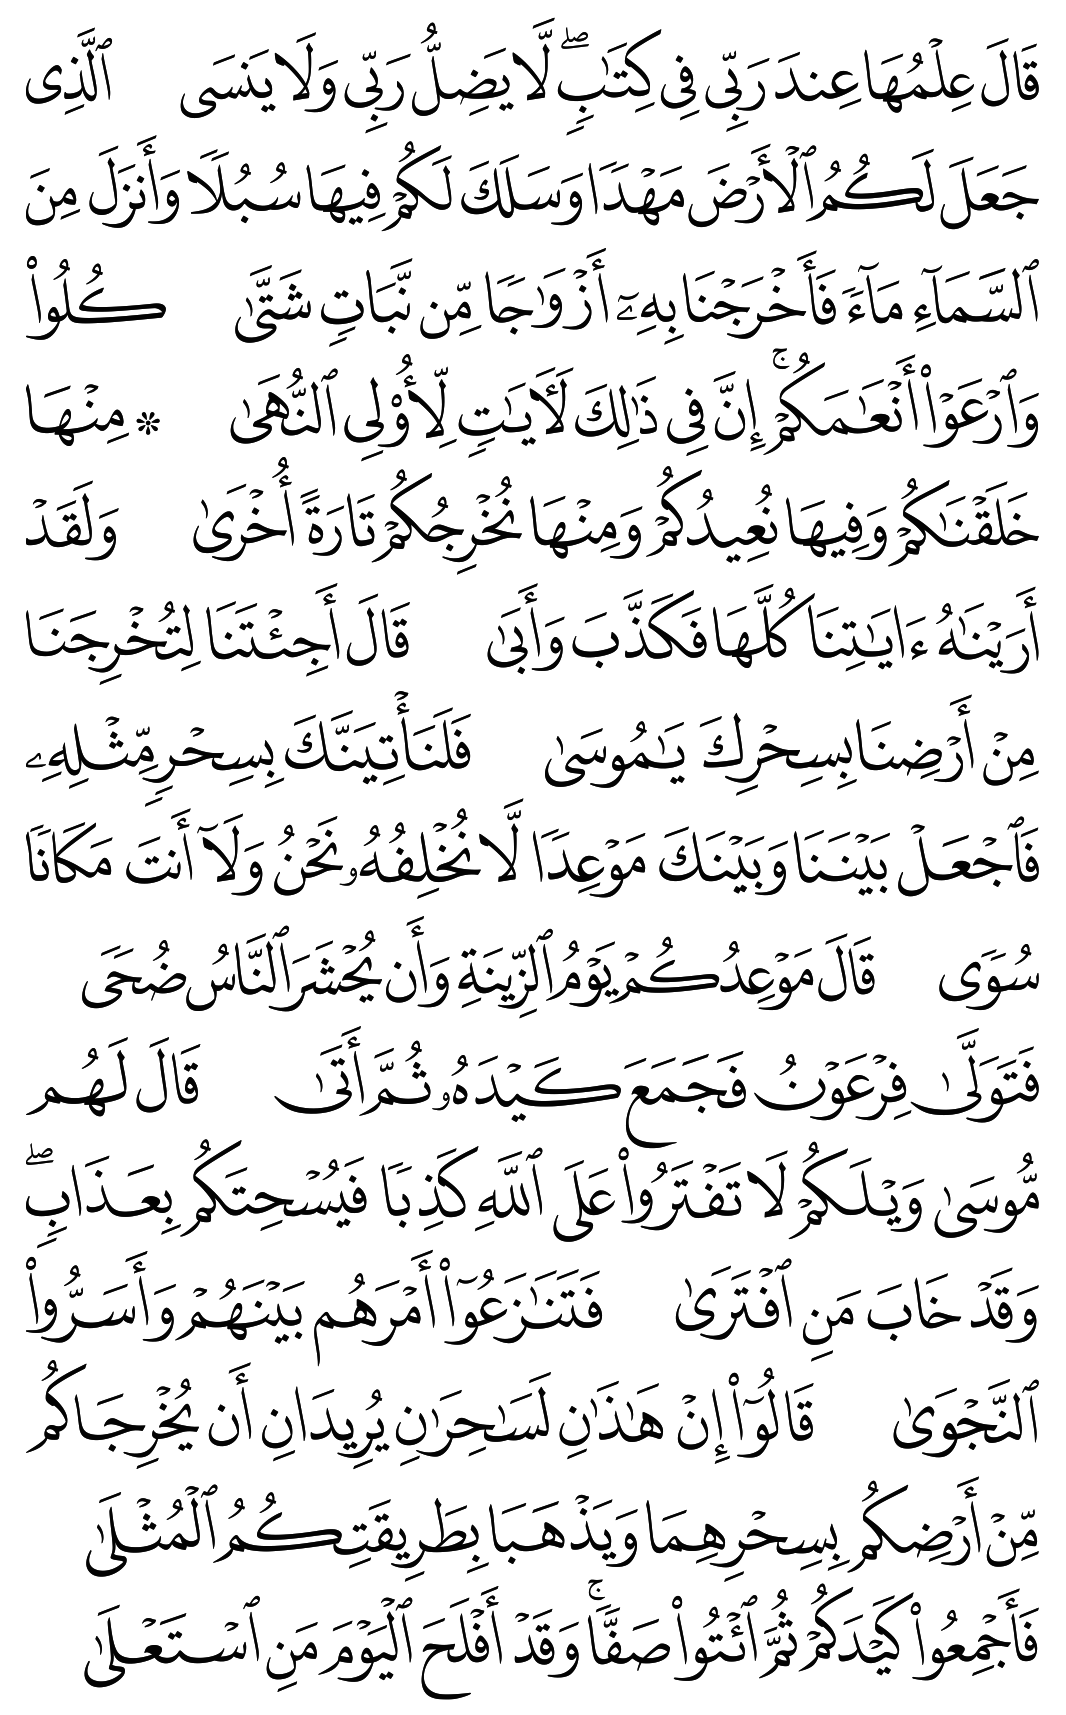 قَالَ عِلۡمُهَا عِندَ رَبِّي فِي كِتَٰبٖۖ لَّا يَضِلُّ رَبِّي وَلَا يَنسَى ٱلَّذِي
جَعَلَ لَكُمُ ٱلۡأَرۡضَ مَهۡدٗا وَسَلَكَ لَكُمۡ فِيهَا سُبُلٗا وَأَنزَلَ مِنَ
ٱلسَّمَآءِ مَآءٗ فَأَخۡرَجۡنَا بِهِۦٓ أَزۡوَٰجٗا مِّن نَّبَاتٖ شَتَّىٰ كُلُواْ
وَٱرۡعَوۡاْ أَنۡعَٰمَكُمۡۚ إِنَّ فِي ذَٰلِكَ لَأٓيَٰتٖ لِّأُوْلِي ٱلنُّهَىٰ ۞ مِنۡهَا
خَلَقۡنَٰكُمۡ وَفِيهَا نُعِيدُكُمۡ وَمِنۡهَا نُخۡرِجُكُمۡ تَارَةً أُخۡرَىٰ وَلَقَدۡ
أَرَيۡنَٰهُ ءَايَٰتِنَا كُلَّهَا فَكَذَّبَ وَأَبَىٰ قَالَ أَجِئۡتَنَا لِتُخۡرِجَنَا
مِنۡ أَرۡضِنَا بِسِحۡرِكَ يَٰمُوسَىٰ فَلَنَأۡتِيَنَّكَ بِسِحۡرٖ مِّثۡلِهِۦ
فَٱجۡعَلۡ بَيۡنَنَا وَبَيۡنَكَ مَوۡعِدٗا لَّا نُخۡلِفُهُۥ نَحۡنُ وَلَآ أَنتَ مَكَانٗا
سُوٗى قَالَ مَوۡعِدُكُمۡ يَوۡمُ ٱلزِّينَةِ وَأَن يُحۡشَرَ ٱلنَّاسُ ضُحٗى
فَتَوَلَّىٰ فِرۡعَوۡنُ فَجَمَعَ كَيۡدَهُۥ ثُمَّ أَتَىٰ قَالَ لَهُم
مُّوسَىٰ وَيۡلَكُمۡ لَا تَفۡتَرُواْ عَلَى ٱللَّهِ كَذِبٗا فَيُسۡحِتَكُم بِعَذَابٖۖ
وَقَدۡ خَابَ مَنِ ٱفۡتَرَىٰ فَتَنَٰزَعُوٓاْ أَمۡرَهُم بَيۡنَهُمۡ وَأَسَرُّواْ
ٱلنَّجۡوَىٰ قَالُوٓاْ إِنۡ هَٰذَٰنِ لَسَٰحِرَٰنِ يُرِيدَانِ أَن يُخۡرِجَاكُم
مِّنۡ أَرۡضِكُم بِسِحۡرِهِمَا وَيَذۡهَبَا بِطَرِيقَتِكُمُ ٱلۡمُثۡلَىٰ
فَأَجۡمِعُواْ كَيۡدَكُمۡ ثُمَّ ٱئۡتُواْ صَفّٗاۚ وَقَدۡ أَفۡلَحَ ٱلۡيَوۡمَ مَنِ ٱسۡتَعۡلَىٰ